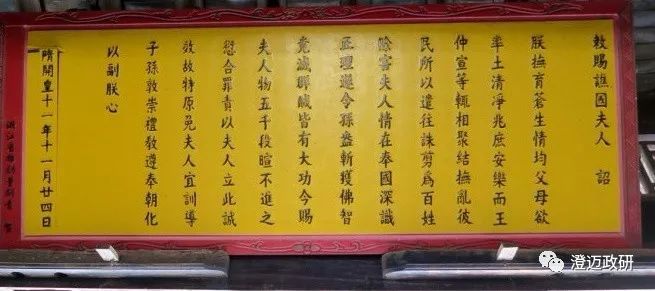 敕賜譙國夫人 詔
朕撫育蒼生情均父母欲
率土清淨兆庶安樂而王
仲宣等輒相聚結撫亂彼
民所以遣往誅剪爲百姓
除害夫人情在奉國深識
正理遂令孫盎斬獲佛智
竟滅群賊皆有大功今賜
夫人物五千段暄不進之
愆合罪責以夫人立此誠
效故特原免夫人宜訓導
子孫敦崇禮教遵奉朝化
以副朕心
隋開皇十一年十一月廿四日
澄迈政研